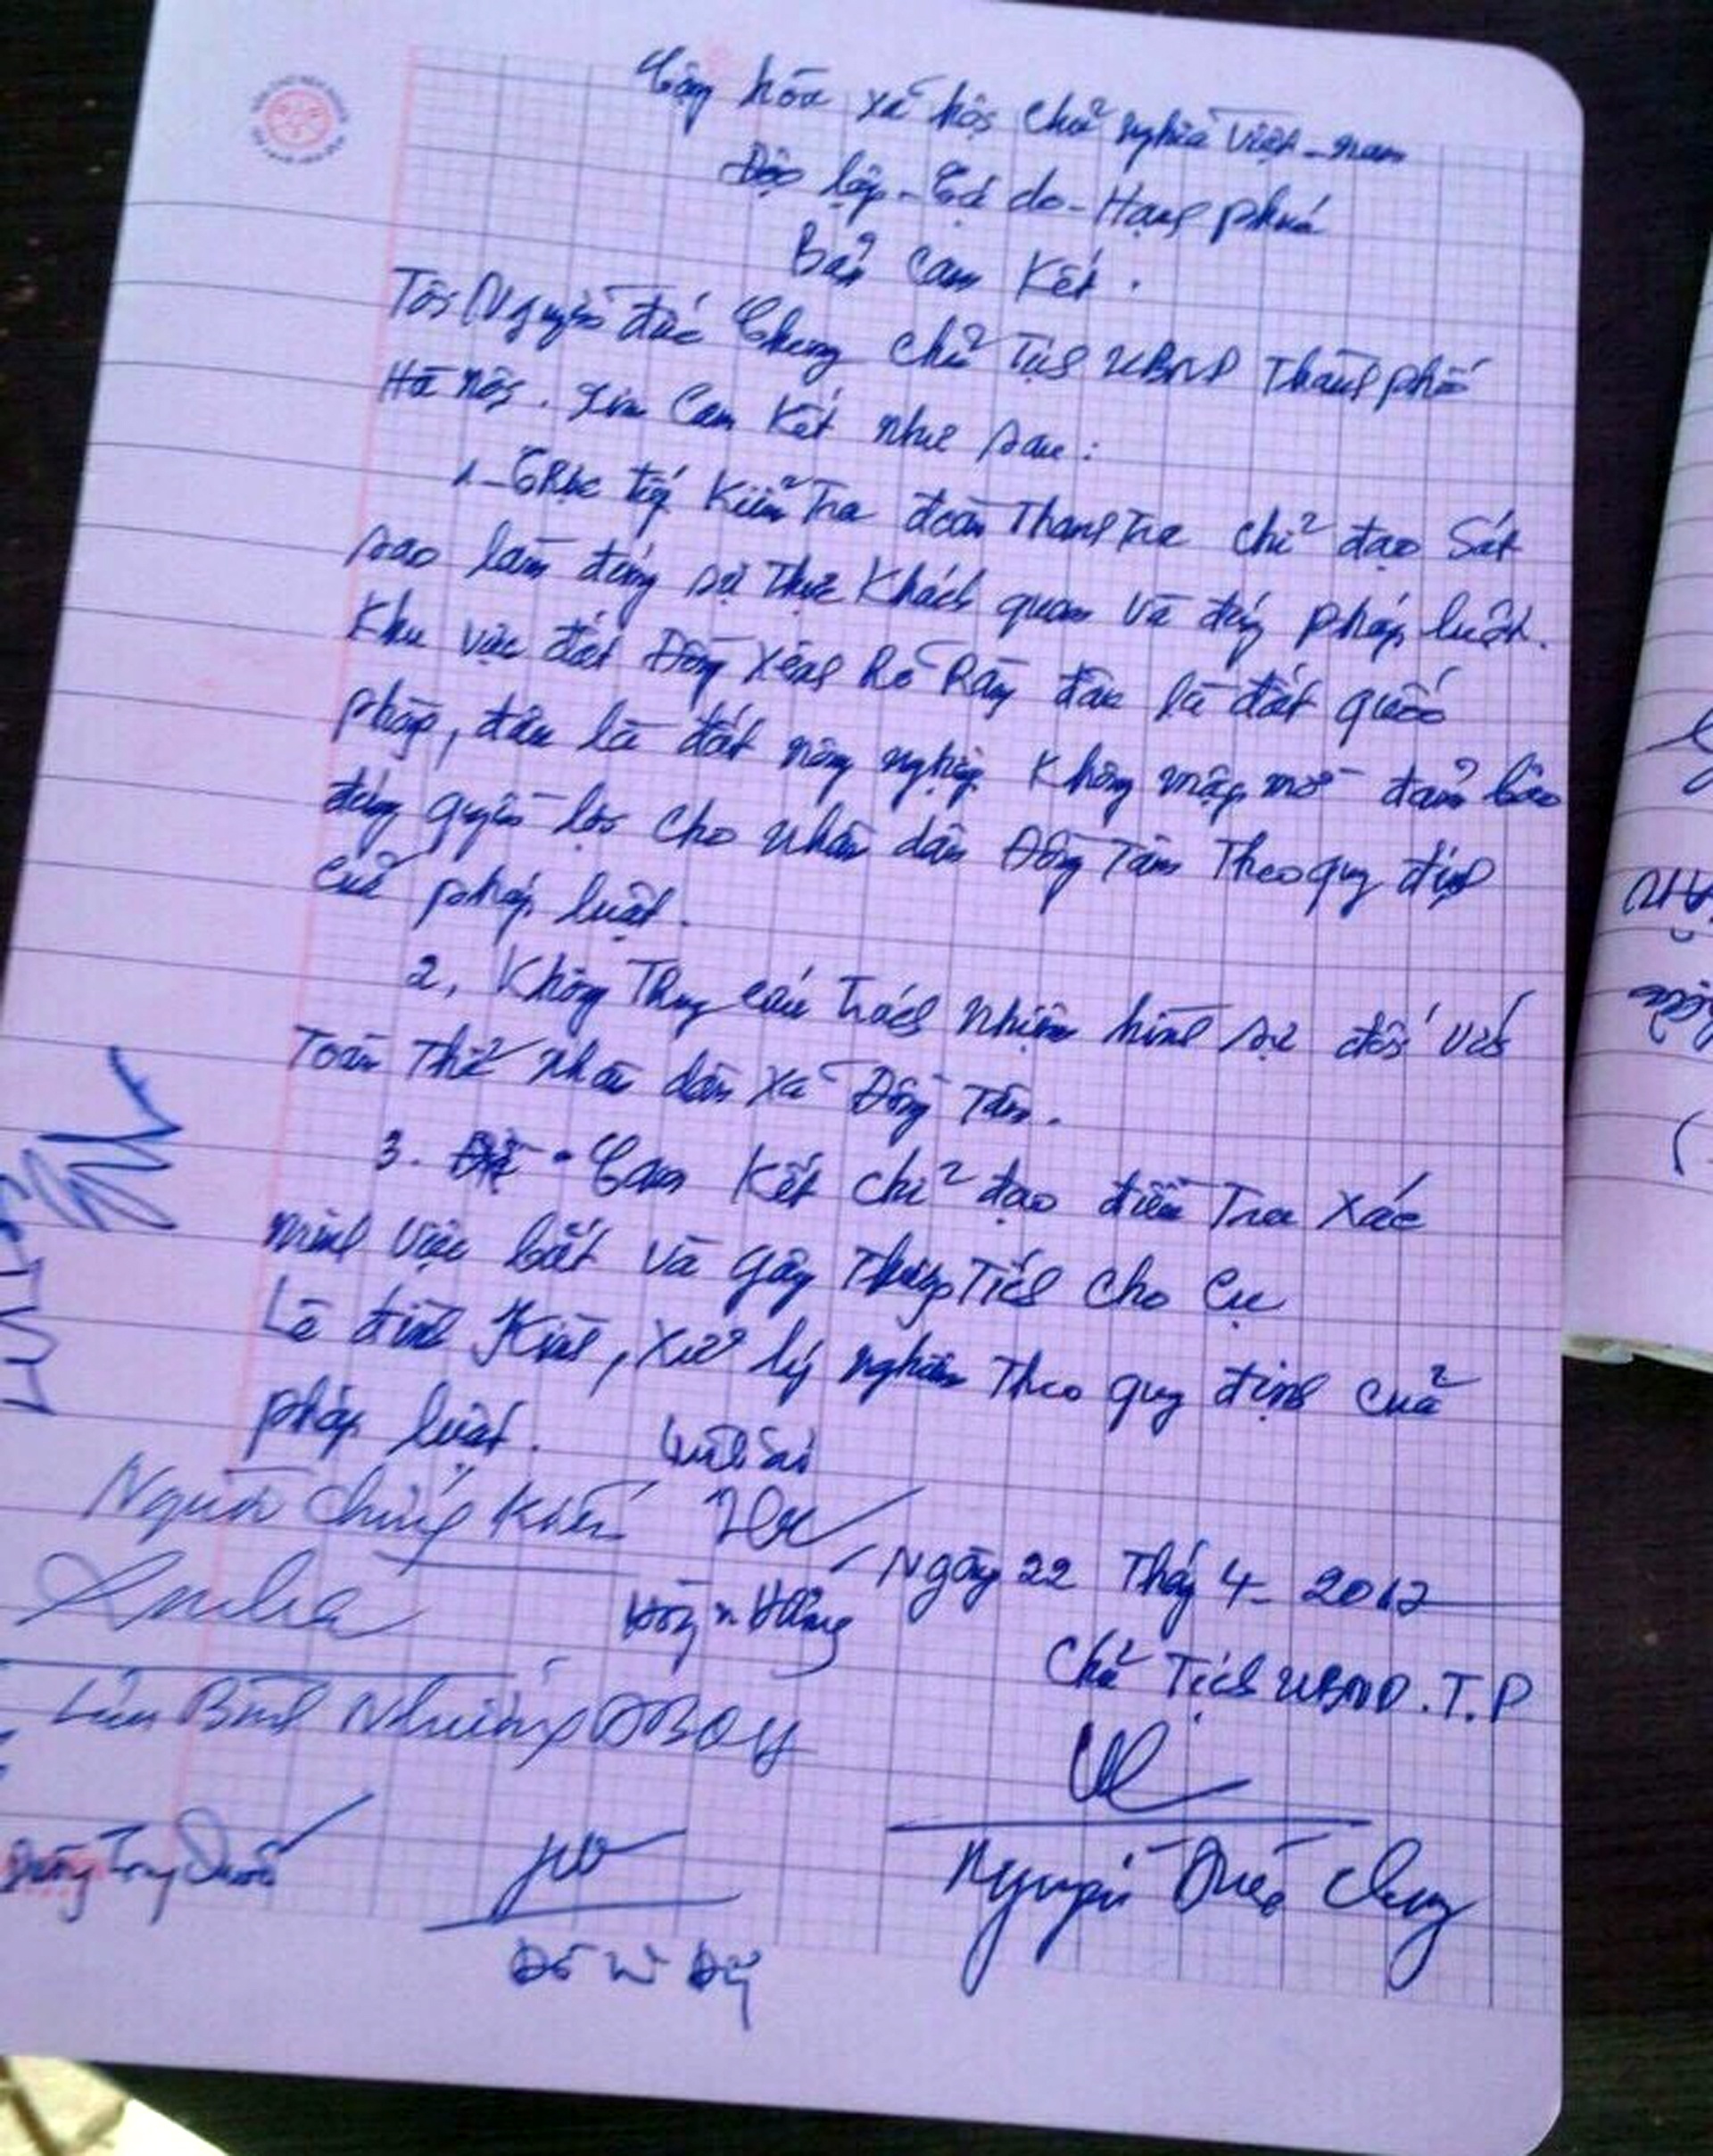 Cộng hòa xã hội chủ nghĩa Việt-nam
Độc lập - Tự do - Hạnh phúc
Bản Cam Kết.
Tôi Nguyễn đức Chung chủ Tịch UBND Thành phố
Hà nội. Xin Cam Kết như sau:
1- Trực tiếp Kiểm Tra đoàn Thanh Tra chỉ đạo Sát
sao làm đúng sự Thực Khách quan và đúng pháp luật.
Khu vực đất Đồng Xênh Rõ Ràng đâu là đất quốc
phòng, đâu là đất nông nghiệp Không mập mờ đảm bảo
đúng quyền lợi cho nhân dân Đồng Tâm Theo quy định
của pháp luật.
2, Không Truy cứu Trách nhiệm hình sự đối với
Toàn Thể nhân dân xã Đồng Tâm.
3. Cam Kết chỉ đạo điều Tra Xác
minh Việc bắt và gây Thương Tích cho Cụ
Lê đình Kình, Xử lý nghiêm Theo quy định của
pháp luật.
Người chứng Kiến
Ngày 22 Tháng 4 - 2017
Chủ Tịch UBND.T.P
Lưu Bình Nhưỡng ĐBQH
Dương Trung Quốc
Nguyễn Đức Chung